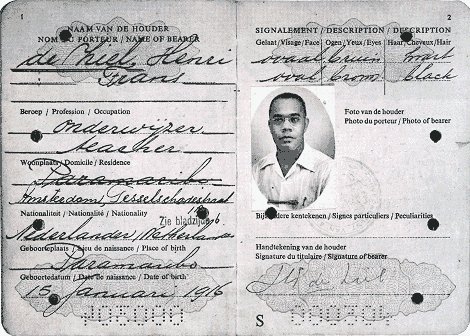 1
NAAM VAN DE HOUDER
NOM DU PORTEUR / NAME OF BEARER
de Thiel, Henri
Frans
Beroep / Profession / Occupation
onderwijzer
teacher
Woonplaats / Domicile / Residence
Paramaribo
Amsterdam, Tesselschadestraat
Nationaliteit / Nationalité / Nationality
Zie bladzijde 6
Nederlander / Netherlander
Geboorteplaats / Lieu de naissance / Place of birth
Paramaribo
Geboortedatum / Date de naissance / Date of birth
15 Januari 1916
2
SIGNALEMENT / DESCRIPTION / DESCRIPTION
Gelaat / Visage / Face Ogen / Yeux / Eyes Haar / Cheveux / Hair
ovaal bruin zwart
oval brown black
Foto van de houder
Photo du porteur / Photo of bearer
Bijzondere kentekenen / Signes particuliers / Peculiarities
Handtekening van de houder
Signature du titulaire / Signature of bearer
S